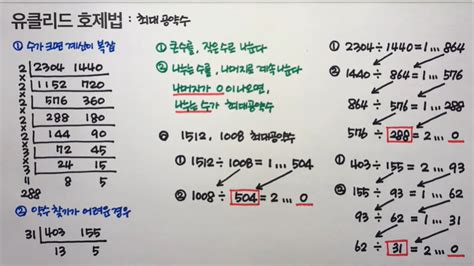 유클리드 호제법 : 최대공약수
① 수가 크면 계산이 복잡
2 | 2304 1440
× 2 | 1152 720
× 2 | 576 360
× 2 | 288 180
× 2 | 144 90
× 3 | 72 45
× 3 | 24 15
8 5
288
② 약수 찾기가 어려운 경우
31 | 403 155
13 5
① 큰수를, 작은수로 나눈다
② 나누는수를, 나머지로 계속 나눈다
나머지가 0이 나오면,
나누는 수가 최대공약수
1512, 1008 최대공약수
① 1512÷1008 = 1 ... 504
② 1008 ÷ 504 = 2 ... 0
① 2304÷1440 = 1 ... 864
② 1440 ÷ 864 = 1 ... 576
864 ÷ 576 = 1 ... 288
576 ÷ 288 = 2 ... 0
① 403÷155 = 2 ... 93
② 155 ÷ 93 = 1 ... 62
93 ÷ 62 = 1 ... 31
62 ÷ 31 = 2 ... 0